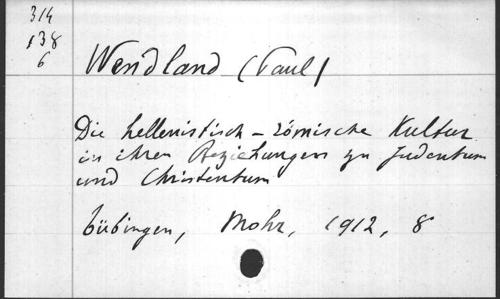 314
138
6
Wendland (Paul)
Die hellenistisch - römische Kultur
in ihren Beziehungen zu Judentum
und Christentum
Tübingen, Mohr, 1912, 8